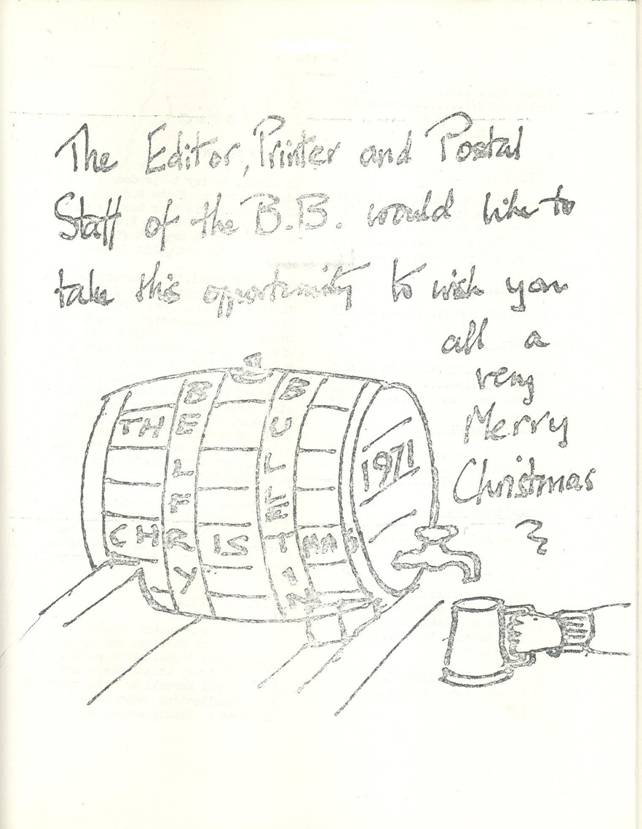 The Editor, Printer and Postal
Staff of the B.B. would like to
take this opportunity to wish you
all a
very
Merry
Christmas
THE
BELFRY
BULLETIN
CHRISTMAS
1971